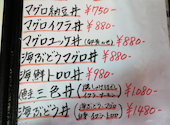 マグロ納豆丼 ¥750-
マグロイクラ丼 ¥880-
マグロユッケ丼 ¥880-
海ぶどうマグロ丼 ¥880-
海鮮トロロ丼 ¥980-
三色丼 ¥1080-
海ぶどう丼 ¥1480-